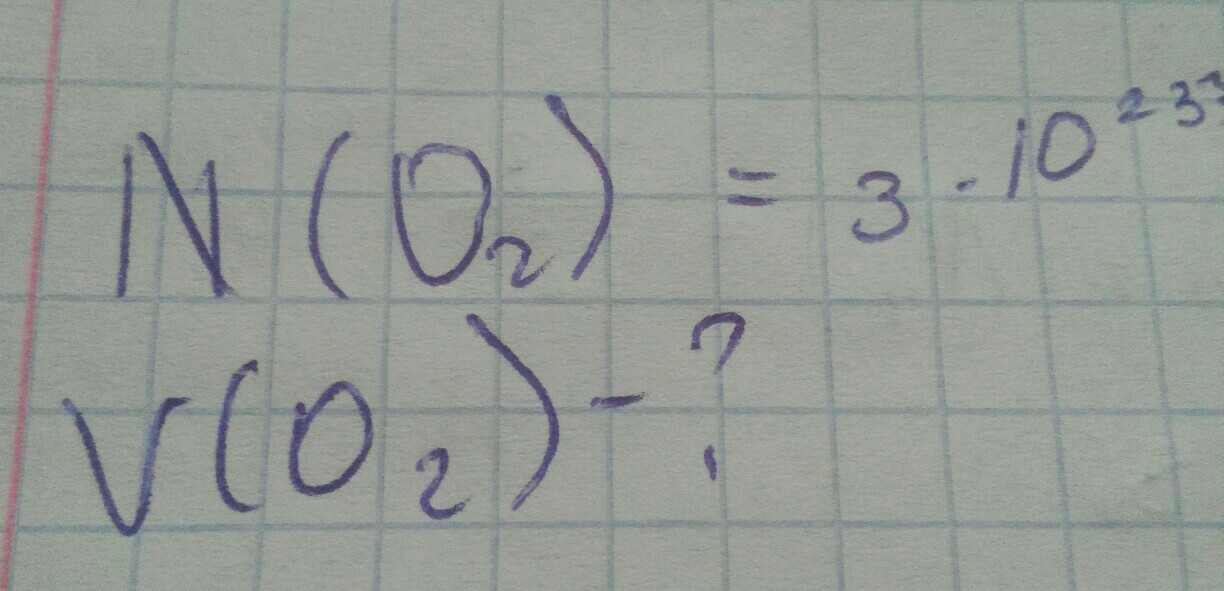 N(O₂) = 3 · 10²³
V(O₂) - ?